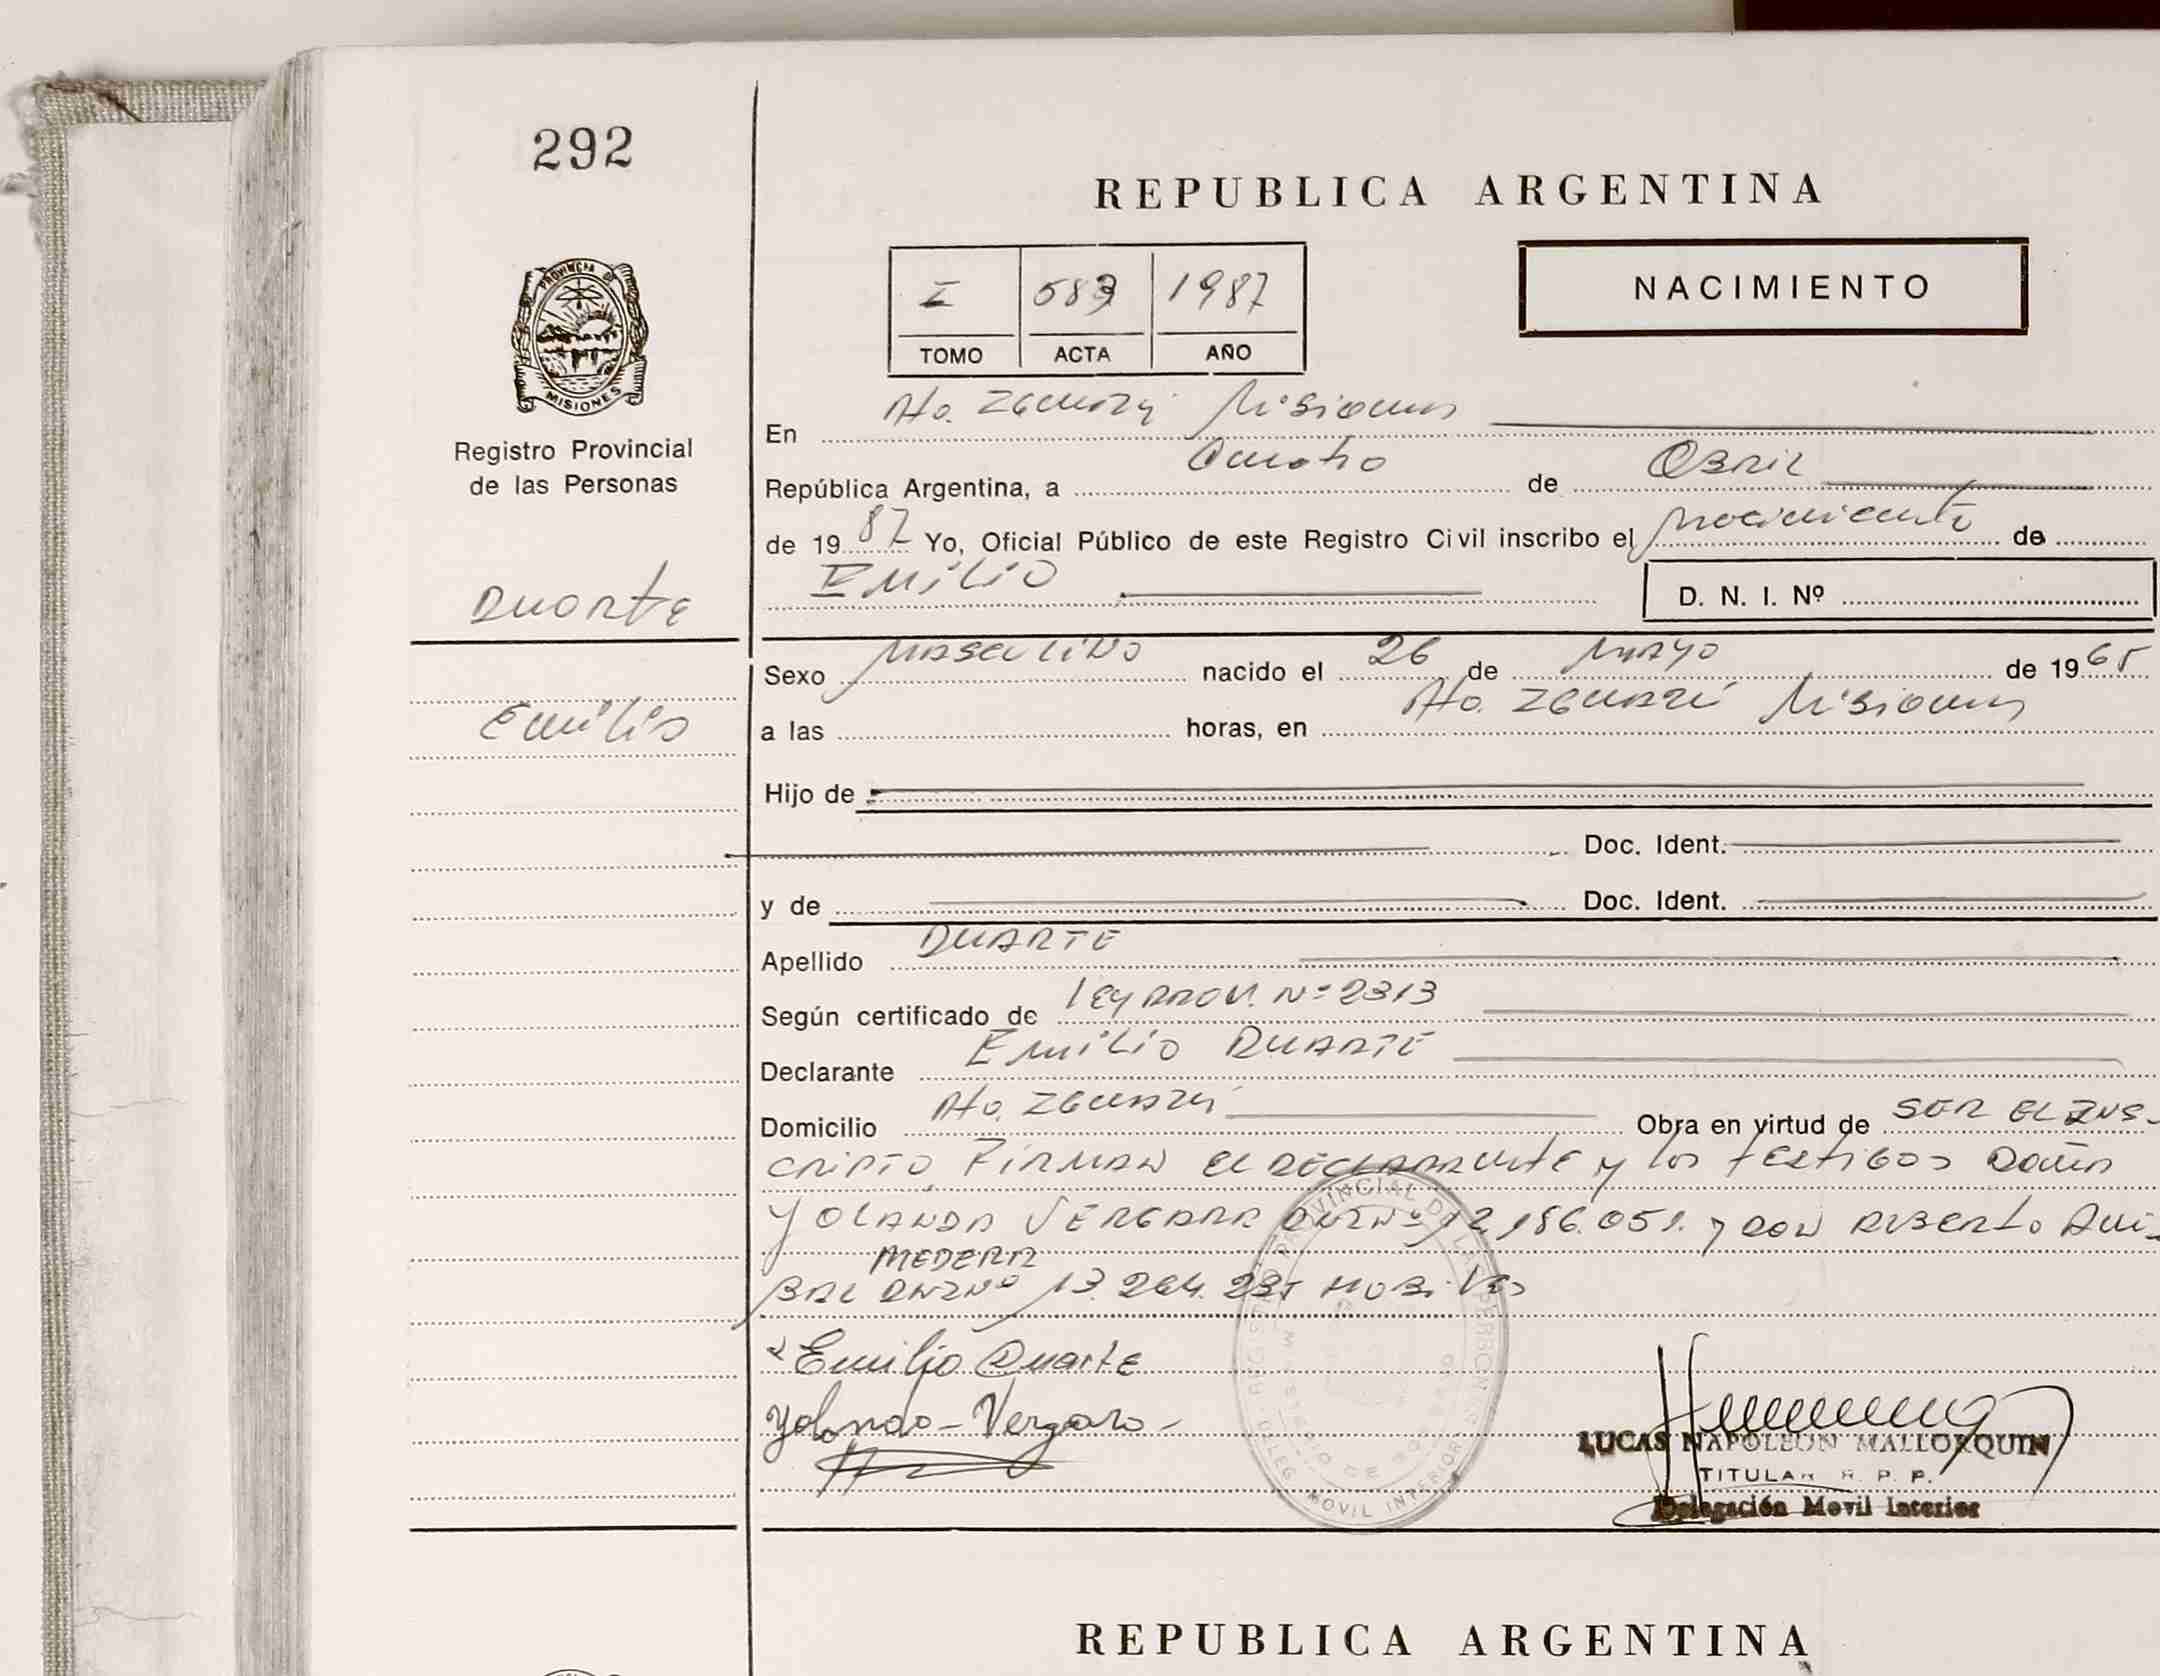 292
REPUBLICA ARGENTINA
I 583 1987
TOMO ACTA AÑO
NACIMIENTO
PROVINCIA DE
MISIONES
Registro Provincial
de las Personas
Duarte
Emilio
En Misiones
República Argentina, a Cuatro de Abril
de 1987 Yo, Oficial Público de este Registro Civil inscribo el nacimiento de
EMILIO D. N. I. Nº
Sexo MASCULINO nacido el 26 de MAYO de 1965
a las horas, en Misiones
Hijo de
Doc. Ident.
y de Doc. Ident.
Apellido DUARTE
Según certificado de LEY PROV. Nº 2313
Declarante EMILIO DUARTE
Domicilio Obra en virtud de SER EL INS-
CRIPTO, FIRMAN EL DECLARANTE y los testigos Doña
YOLANDA VERGARA DNI Nº 12,186.051. y DON ALBERTO ANI-
MEDERA
BAL DNI Nº 13.264.
Emilio Duarte
Yolanda - Vergara -
REGISTRO PROVINCIAL DE LAS PERSONAS
DELEG. MOVIL INTERIOR
LUCAS NAPOLEON MALLORQUIN
TITULAR R. P. P.
Delegación Movil Interior
REPUBLICA ARGENTINA